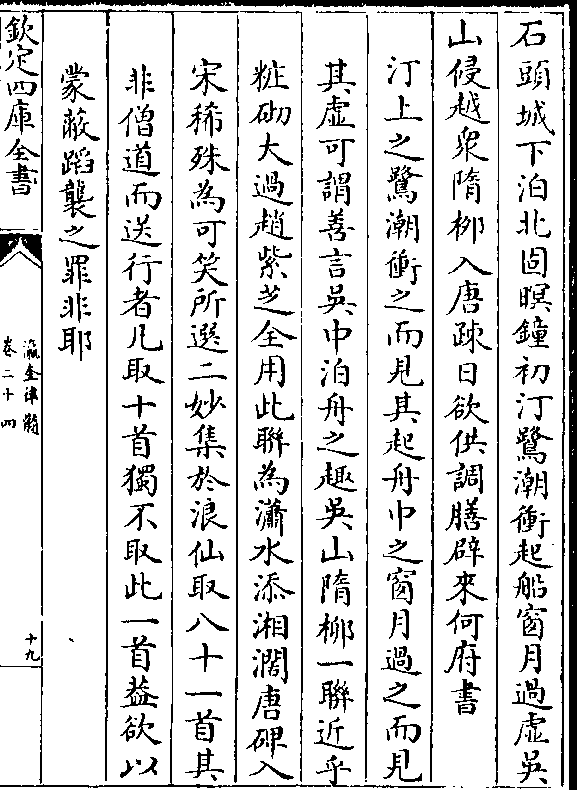 石頭城下泊北固暝鐘初汀鷺潮衝起船窗月過虛吳
山侵越衆隋柳入唐踈日欲供調膳辟來何府書
汀上之鷺潮衝之而見其起舟中之窗月過之而見
其虛可謂善言吳中泊舟之趣吳山隋柳一聯近乎
粧砌大過趙紫芝全用此聯為瀟水添湘濶唐碑入
宋稀殊為可笑所選二妙集於浪仙取八十一首其
非僧道而送行者凡取十首獨不取此一首葢欲以
蒙蔽蹈襲之罪非耶
欽定四庫全書
瀛奎律髓
卷二十四
十九